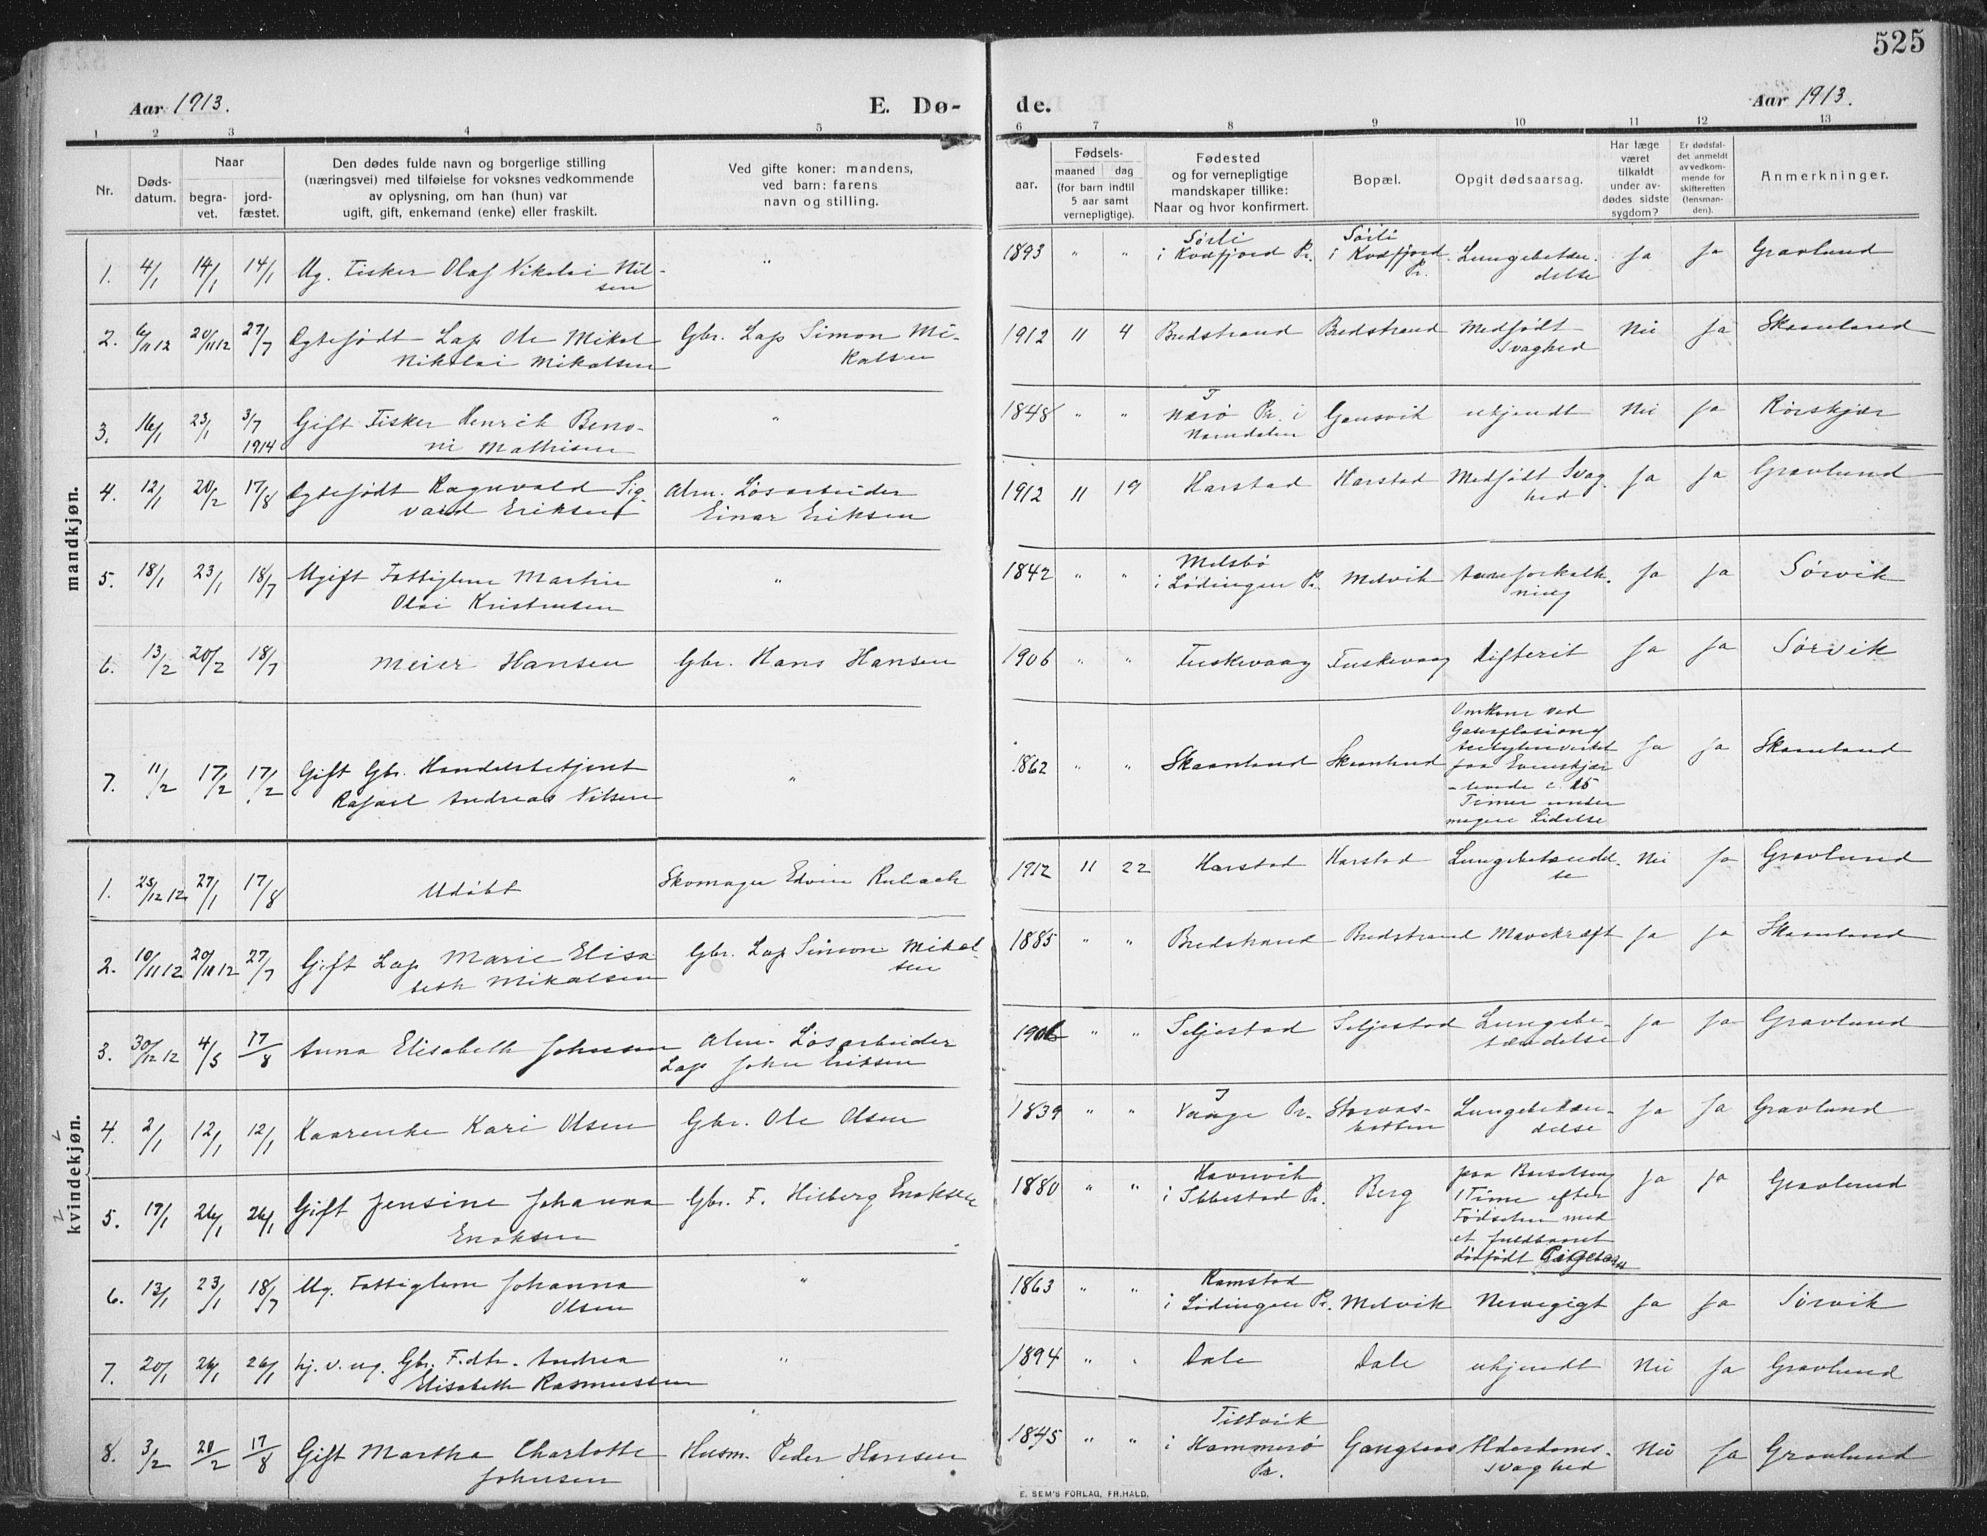 525
Aar 1913.
E. Dø-
de.
Aar 1913.
1 2 3 4 5 6 7 8 9 10 11 12 13
Nr.
Døds-
datum.
Naar
begra-
vet.
jord-
fæstet.
Den dødes fulde navn og borgerlige stilling
(næringsvei) med tilføielse for voksnes vedkommende
av oplysning, om han (hun) var
ugift, gift, enkemand (enke) eller fraskilt.
Ved gifte koner: mandens,
ved barn: farens
navn og stilling.
aar.
Fødsels-
maaned dag
(for barn indtil
5 aar samt
vernepligtige).
Fødested
og for vernepligtige
mandskaper tillike:
Naar og hvor konfirmert.
Bopæl.
Opgit dødsaarsag.
Har læge
været
tilkaldt
under av-
dødes sidste
sygdom?
Er dødsfal-
det anmeldt
av vedkom-
mende for
skifteretten
(lensman-
den).
Anmerkninger.
mandkjøn.
1. 4/1 14/1 14/1 Ug. Fisker Olaf Nikolai Nil-
sen " 1893 " " Sørli
i Kvæfjord Pr. Sørli
i Kvæfjord
Pr. Lungebetæn-
delse Ja Ja Gravlund
2. 6/11 12 20/11 12 27/7 Egtefødt Lap Ole Mikal
Nikolai Mikalsen Gbr. Lap Simon Mi-
kalsen 1912 11 4 Bredstrand Bredstrand Medfødt
Svaghed Nei Ja Skaanland
3. 16/1 23/1 3/7
1914 Gift Fisker Henrik Beno-
ni Mathisen " 1848 " " I
Nærø Pr. i
Namdalen Gausvik ukjendt Nei Ja Rørskjær
4. 12/1 20/2 17/8 Egtefødt Ragnvald Sig-
vard Eriksen Alm. Løsarbeider
Einar Eriksen 1912 11 19 Harstad Harstad Medfødt Svag-
hed Ja Ja Gravlund
5. 18/1 23/1 18/7 Ugift Fattiglem Martin
Olai Kristensen " 1842 " " Melsbø
i Lødingen Pr. Melvik Aareforkalk-
ning Ja Ja Sørvik
6. 13/2 20/2 18/7 Meier Hansen Gbr. Hans Hansen 1906 " " Fuskevaag Fuskevaag Difterit Ja Ja Sørvik
7. 11/2 17/2 17/2 Gift Gbr. Handelsbetjent
Rafael Andreas Nilsen " 1862 " " Skaanland Skaanland Omkom ved
Gasexplosion i
Acetylenverket
paa Evenskjær
- levede c. 15
Timer under
megen Lidelse Ja Ja Skaanland
kvindekjøn.
1. 25/12 12 27/1 17/8 Udøbt Skomager Edvin Rubach 1912 11 22 Harstad Harstad Lungebetændel-
se Nei Ja Gravlund
2. 10/11 12 20/11 12 27/7 Gift Lap Marie Elisa
beth Mikalsen Gbr. Lap Simon Mikal-
sen 1885 " " Bredstrand Bredstrand Mavekræft Ja Ja Skaanland
3. 30/12 12 4/5 17/8 Anna Elisabeth Johnsen Alm. Løsarbeider
Lap John Eriksen 1906 " " Seljestad Seljestad Lungebe-
tændelse Ja Ja Gravlund
4. 2/1 12/1 12/1 Kaarenke Kari Olsen Gbr. Ole Olsen 1839 " " I
Vaage Pr. Storvas-
botten Lungebetæn-
delse Ja Ja Gravlund
5. 17/1 26/1 26/1 Gift Jensine Johanna
Enoksen Gbr. F. Hilberg Enoksen 1880 " " Havnvik
i Ibbestad Pr. Berg paa Barselseng
1 Time efter
Fødselen med
et fuldbaaret
dødfødt Pigebarn Ja Ja Gravlund
6. 13/1 23/1 18/7 Ug. Fattiglem Johanna
Olsen " 1863 " " Ramstad
i Lødingen Pr. Melvik Nervegigt Ja Ja Sørvik
7. 20/1 26/1 26/1 hj. v. ug. Gbr. F. dtr. Andrea
Elisabeth Rasmussen " 1894 " " Dale Dale ukjendt Nei Ja Gravlund
8. 3/2 20/2 17/8 Gift Martha Charlotte
Johnsen Husm. Peder Hansen 1845 " " i Hammerø
Pr. Gangsaas Alderdoms-
svaghed Nei Ja Gravlund
E. SEM'S FORLAG, FR.HALD.